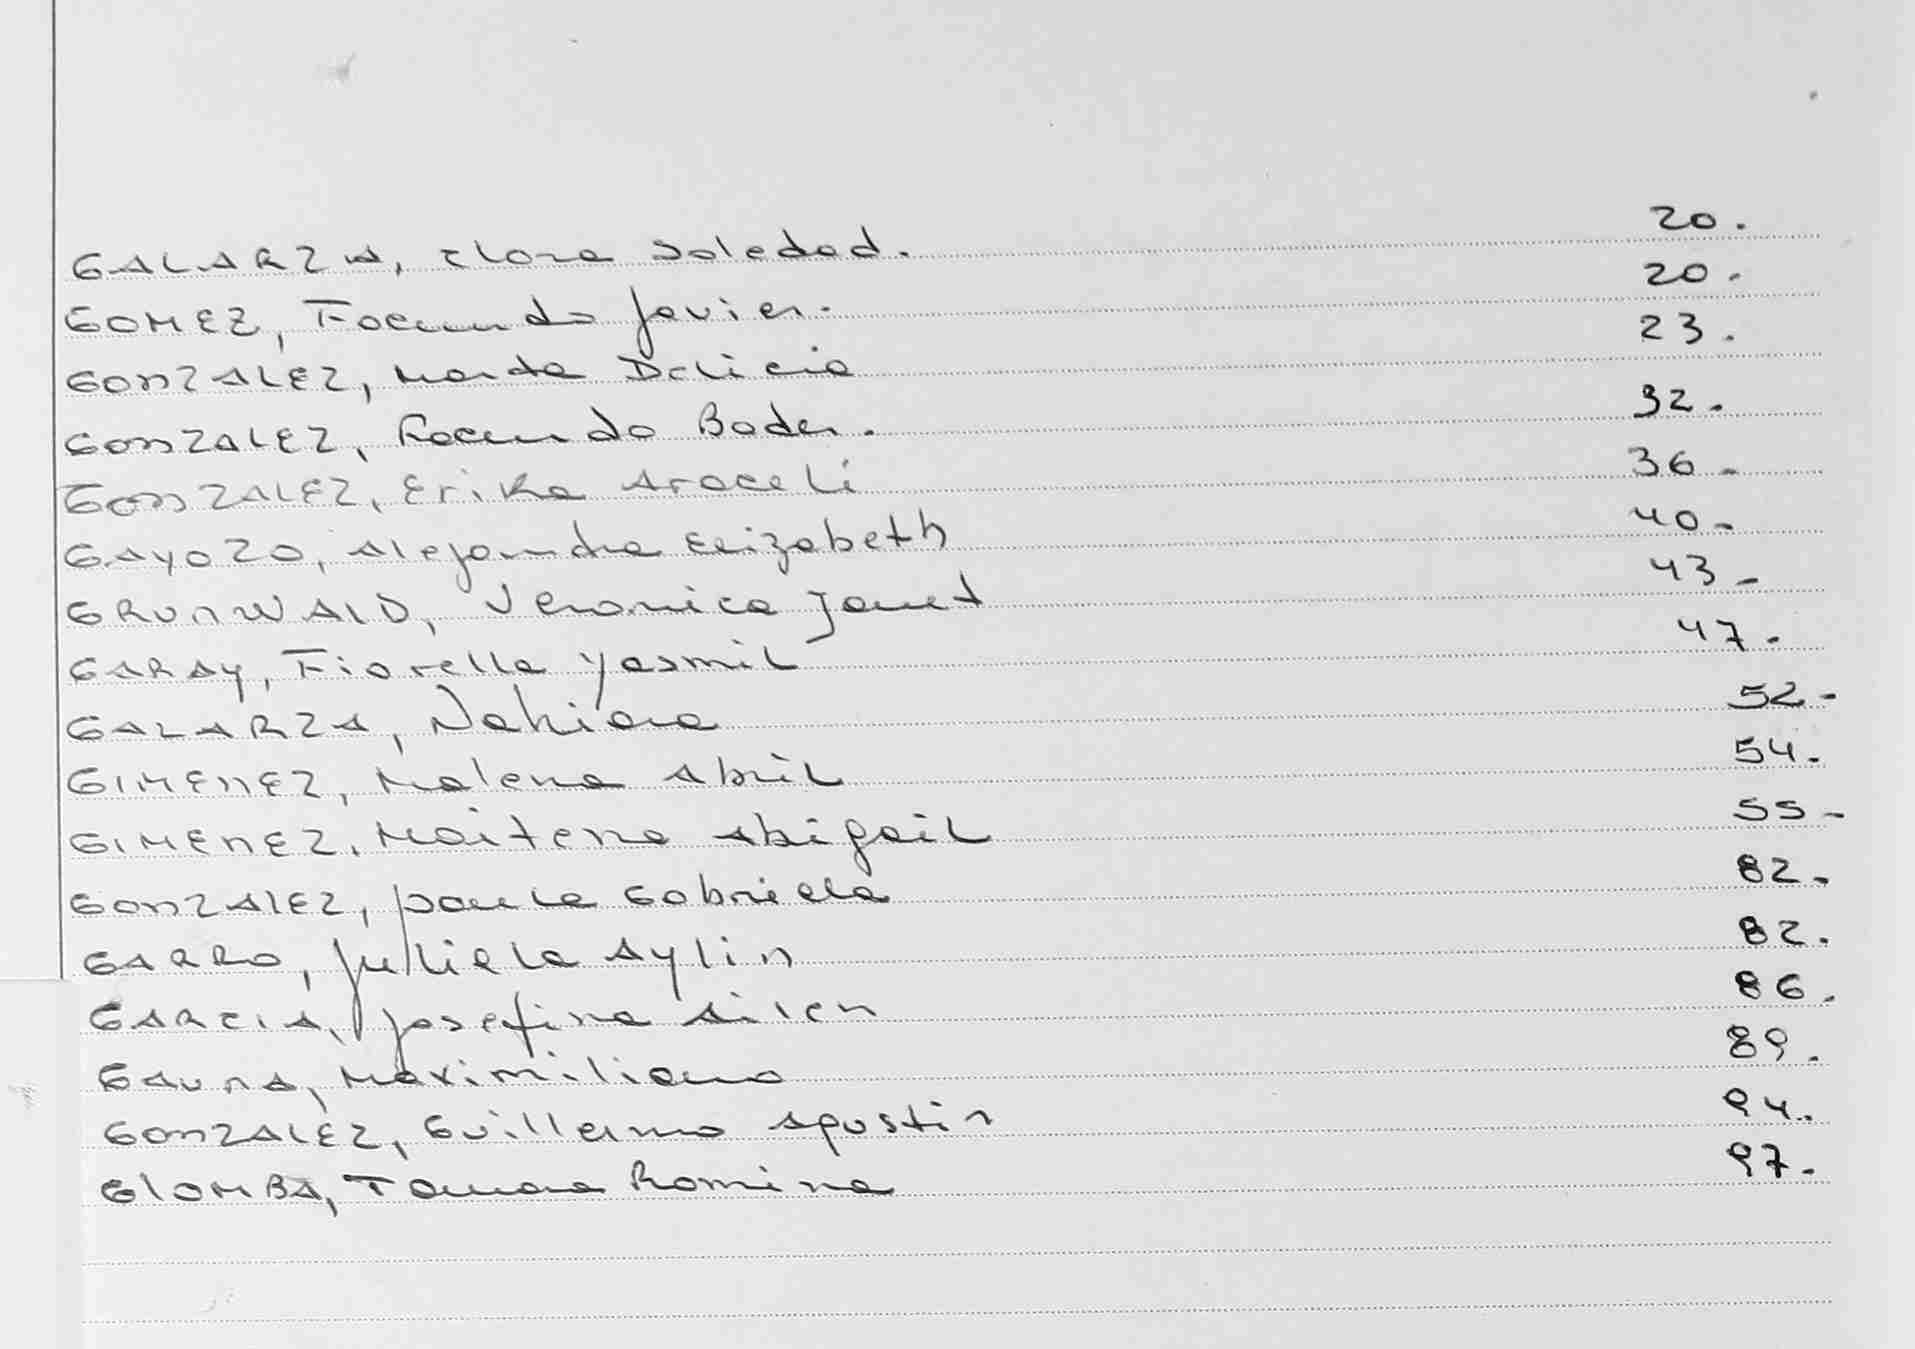 GALARZA, Flora Soledad. 20.
GOMEZ, Facundo Javier. 20.
GONZALEZ, Marta Delicia 23.
GONZALEZ, Facundo Bader. 32.
GONZALEZ, Erika Araceli 36-
GAYOZO, Alejandra Elizabeth 40-
GRUNWALD, Veronica Janet 43-
GARAY, Fiorella Yasmil 47.
GALARZA, Nahiara 52-
GIMENEZ, Malena Abril 54.
GIMENEZ, Maitena Abigail 55-
GONZALEZ, Paula Gabriela 82.
GARRO, Juliela Aylin 82.
GARCIA, Josefina Ailen 86.
GAUNA, Maximiliano 89.
GONZALEZ, Guillermo Agustin 94.
GLOMBA, Tamara Romina 97.